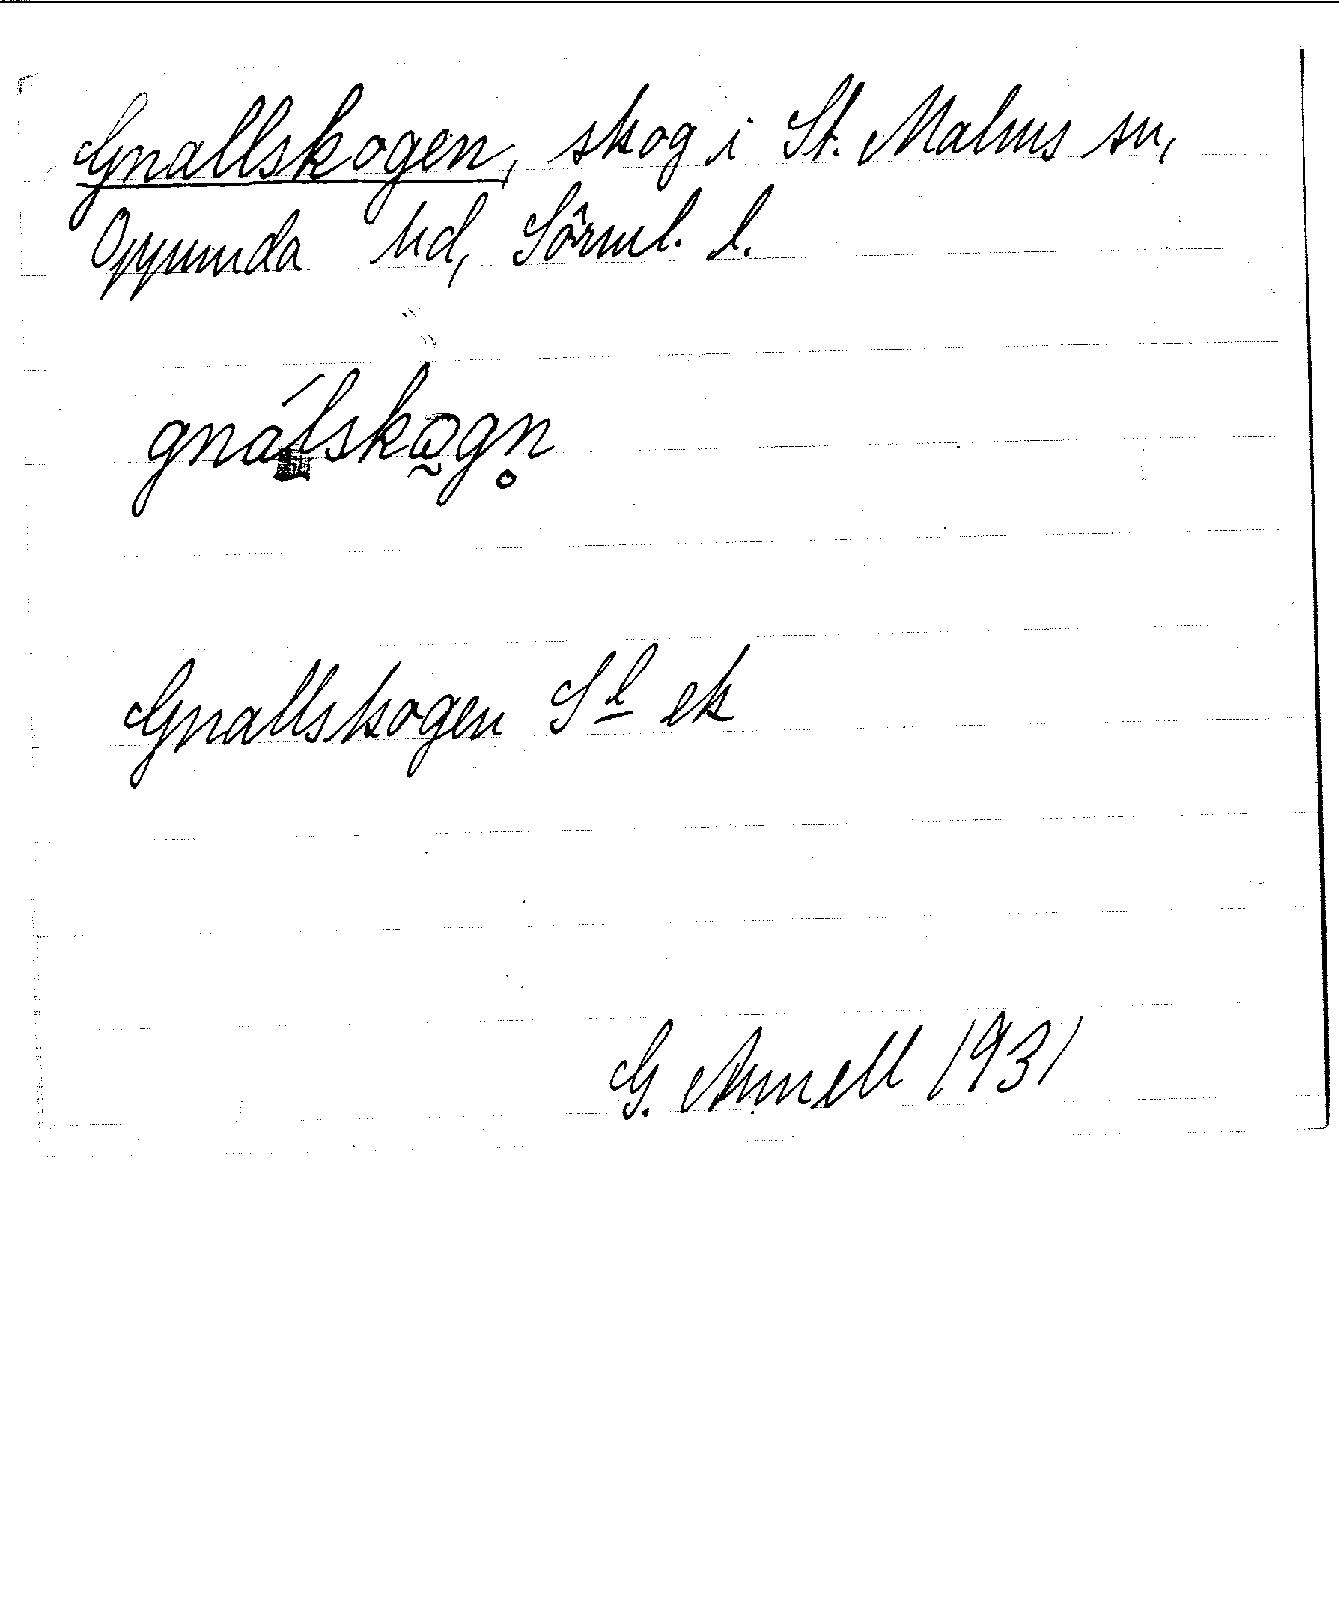 Gnallskogen, skog i St. Malms sn,
Oppunda hd, Sörml. l.
gnálskogn̥
Gnallskogen S l ek
G. Annell 1931